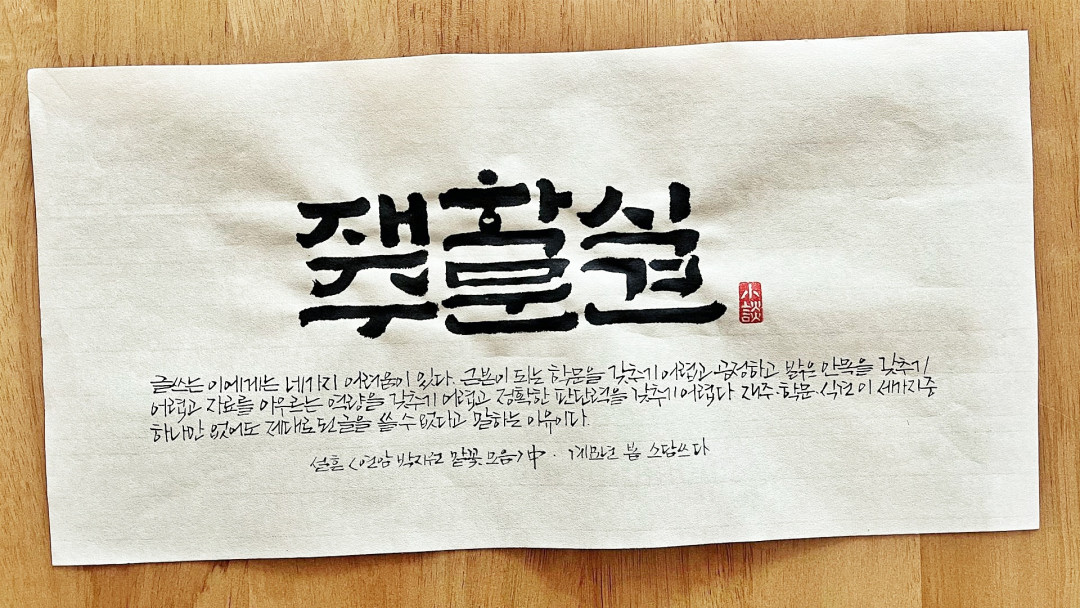 재주 학문 식견
小談
글쓰는 이에게는 네가지 어려움이 있다. 근본이 되는 학문을 갖추기 어렵고 공정하고 밝은 안목을 갖추기
어렵고 자료를 아우르는 역량을 갖추기 어렵고 정확한 판단력을 갖추기 어렵다 재주·학문·식견 이 세가지중
하나만 없어도 제대로 된 글을 쓸 수 없다고 말하는 이유이다.
설흔 <연암 박지원 말꽃 모음>中 · 계묘년 봄 소담쓰다